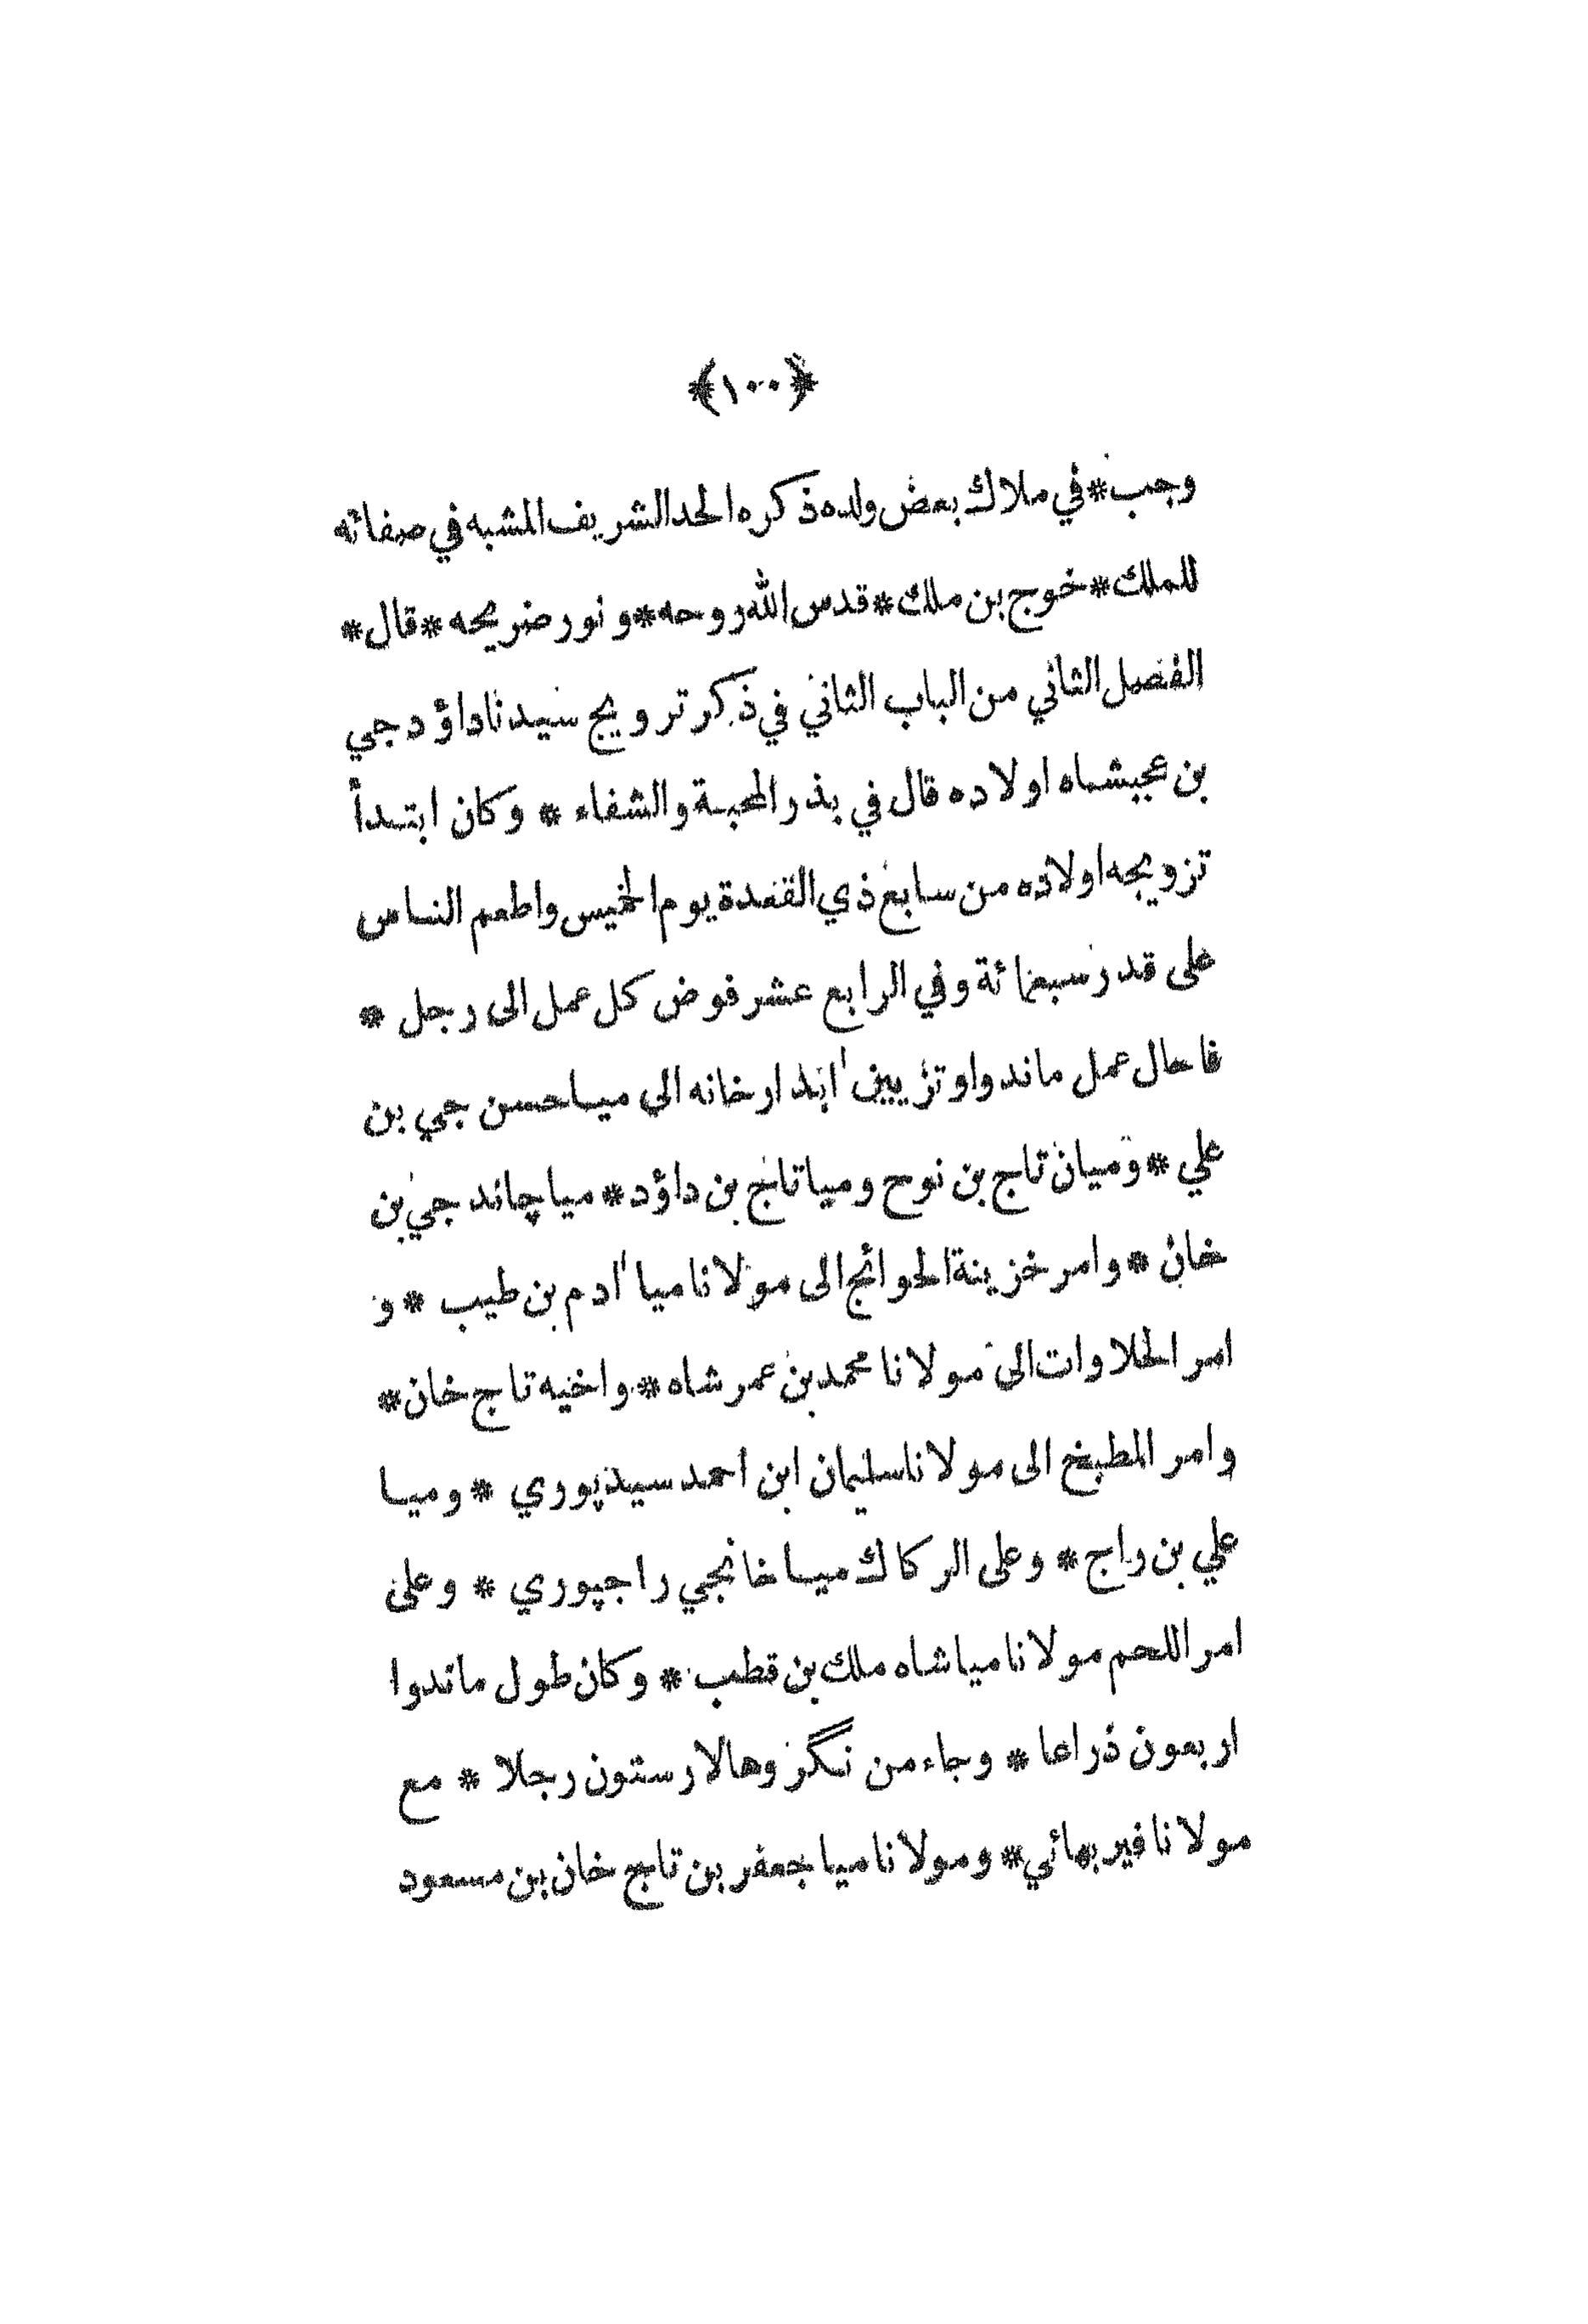 ﴿١٠٠﴾
وجب * في ملاك بعض ولده ذكره الحد الشريف المشبه في صفاته
للملك * خوج بن ملك * قدس الله روحه * و نور ضريحه * قال *
الفصل الثاني من الباب الثاني في ذكر ترويج سيدنا داؤد جي
بن عجبشاه اولاده قال في بذر المحبة والشفاء * وكان ابتدأ
تزويجه اولاده من سابع ذي القعدة يوم الخميس واطعم الناس
على قدر سبعمائة وفي الرابع عشر فوض كل عمل الى رجل *
فاحال عمل ماندوا و تزيين ابدارخانه الي مياحسن جي بن
علي * وميان تاج بن نوح وميا تاج بن داؤد * ميا چاند جي بن
خان * وامر خزينة الحوائج الى مولانا ميا ادم بن طيب * و
امر الحلاوات الى مولانا محمد بن عمر شاه * واخيه تاج خان *
وامر المطبخ الى مولانا سليمان ابن احمد سيدپوري * وميا
علي بن راج * وعلى الركاك ميا خانجي راجپوري * وعلى
امر اللحم مولانا ميا شاه ملك بن قطب * وكان طول ماندوا
اربعون ذراعا * وجاء من نگر وهالار ستون رجلا * مع
مولانا فير بهائي * ومولانا ميا جعفر بن تاج خان بن مسعود